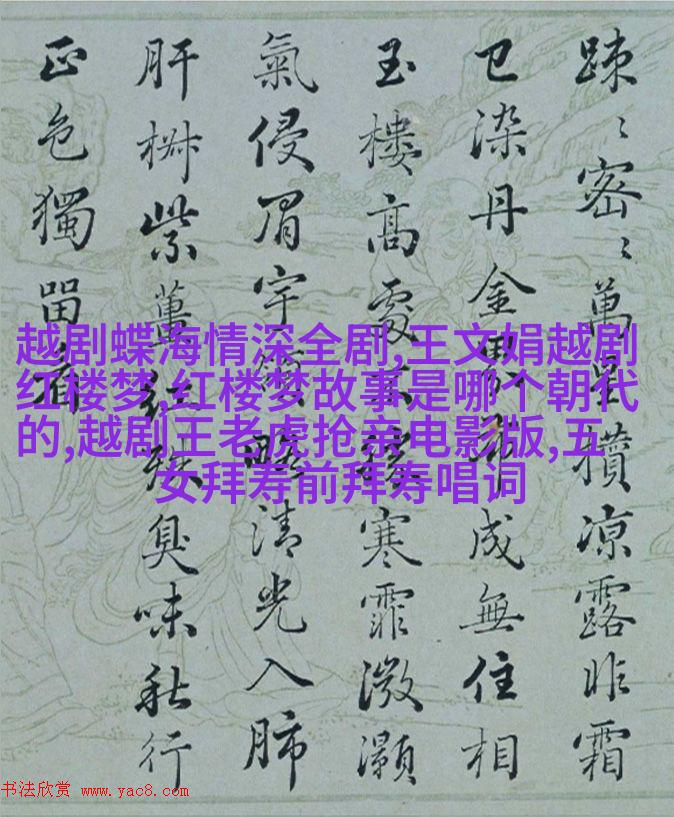 踈〻密〻萬星攢凉露昨霜
已染丹金成無住相
玉樓高處寒霏微灝
氣侵眉宇略清光入肺
肝紫薑臭味秋行
正色獨留看
越剧蝶海情深全剧,王文娟越剧
红楼梦,红楼梦故事是哪个朝代
的,越剧王老虎抢亲电影版,五
女拜寿前拜寿唱词
书法欣赏 www.yac8.com